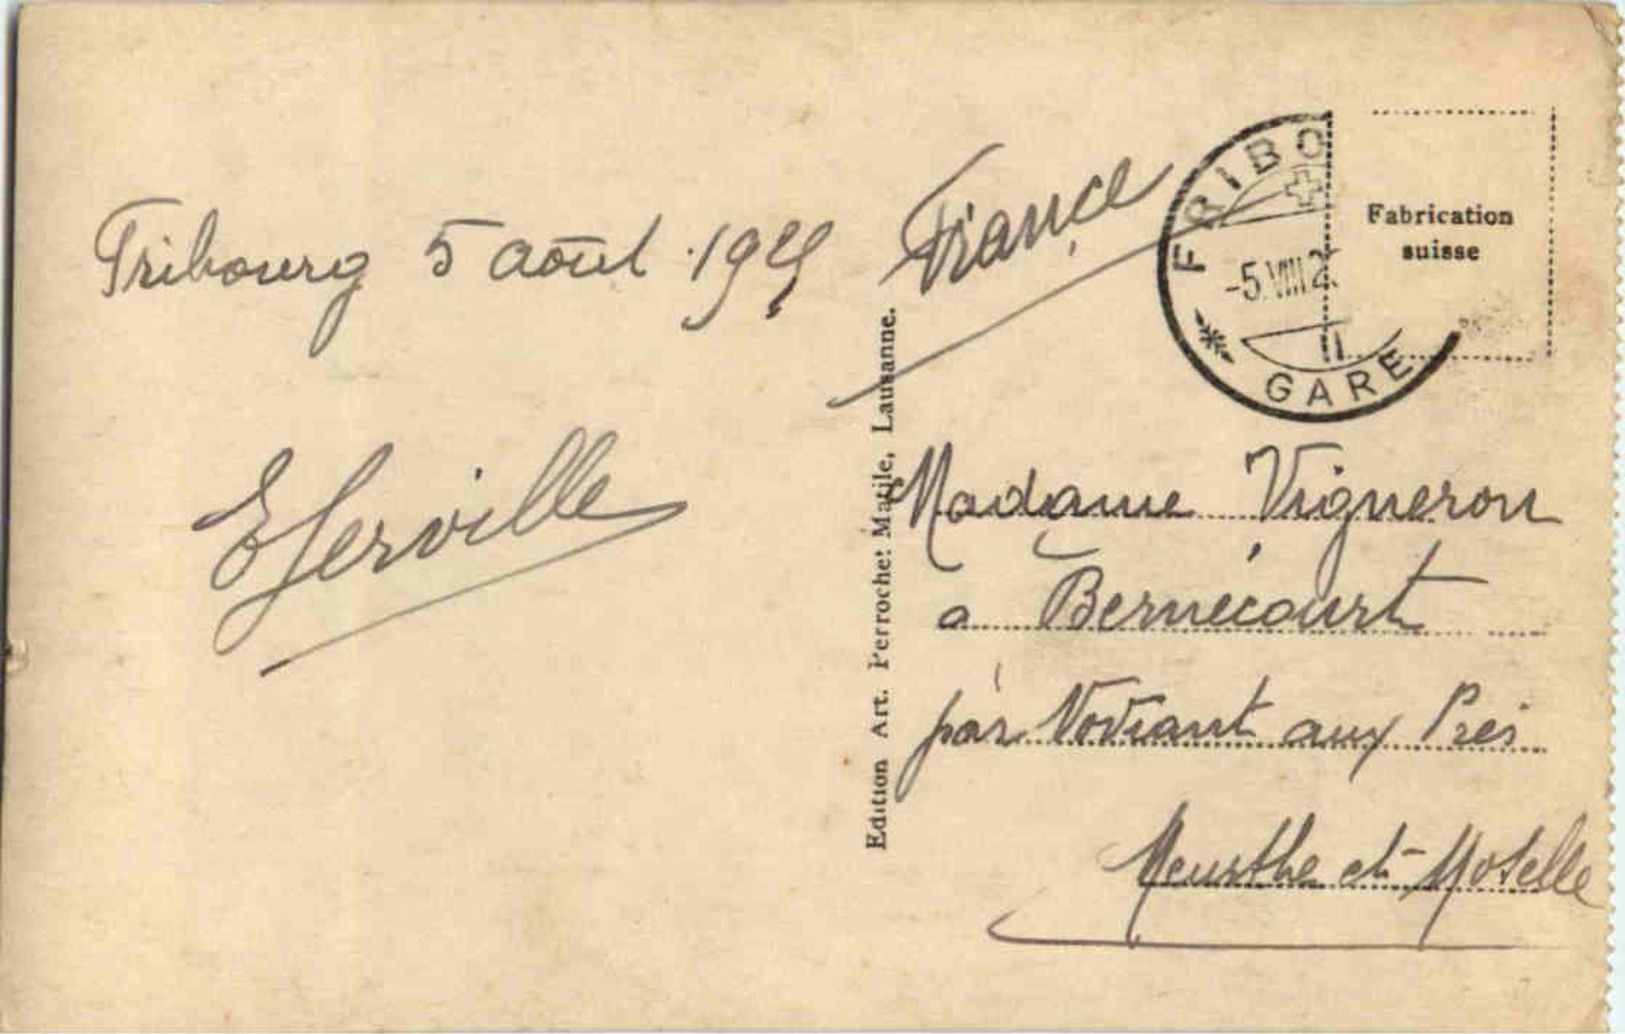 Fribourg 5 août 1925
France
FRIBO
-5.VIII.2
GARE
Fabrication
suisse
Edition Art. Perrochet Matile, Lausanne.
Madame Vigneron
à Bernécourt
par Noviant aux Prés
Meurthe et Moselle